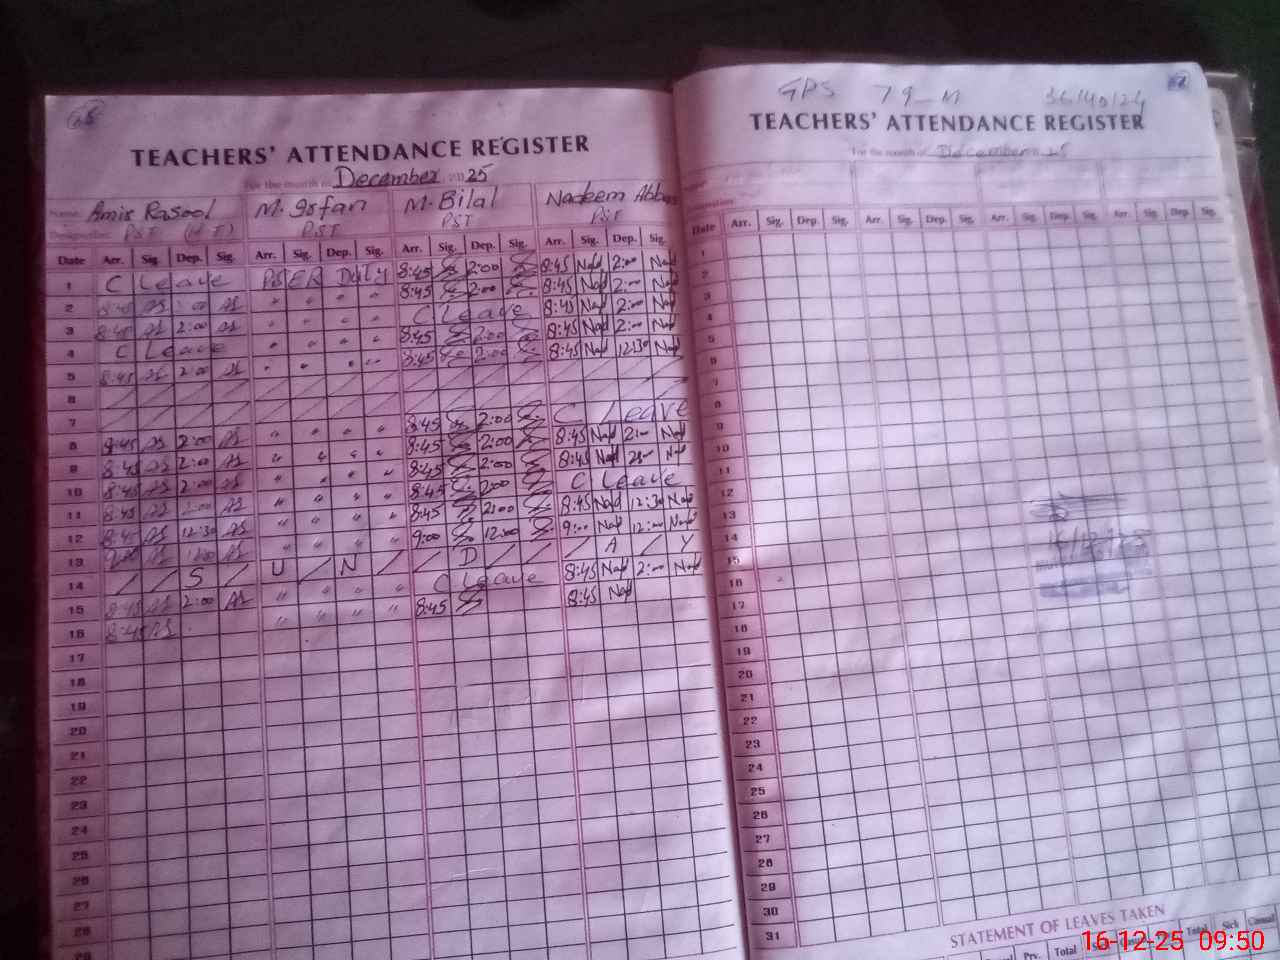 TEACHERS' ATTENDANCE REGISTER
For the month of December 2025
Name: Amir Rasool M. Irfan M. Bilal Nadeem Abbas
Designation: PST (H.T) PST PST PST
Date Arr. Sig. Dep. Sig. Arr. Sig. Dep. Sig. Arr. Sig. Dep. Sig. Arr. Sig. Dep. Sig.
1 C Leave PSER Duty 8:45 2:00 8:45 Nad 2:00 Nad
2 8:45 AS 2:00 AS " " " " 8:45 2:00 8:45 Nad 2:00 Nad
3 8:45 AS 2:00 AS " " " " C Leave 8:45 Nad 2:00 Nad
4 C Leave " " " " 8:45 2:00 8:45 Nad 2:00 Nad
5 8:45 AS 2:00 AS " " " " 8:45 2:00 8:45 Nad 12:30 Nad
6
7
8 8:45 AS 2:00 AS " " " " 8:45 2:00 C Leave
9 8:45 AS 2:00 AS " " " " 8:45 2:00 8:45 Nad 2:00 Nad
10 8:45 AS 2:00 AS " " " " 8:45 2:00 8:45 Nad Nad
11 8:45 AS 2:00 AS " " " " 8:45 2:00 C Leave
12 8:45 AS 12:30 AS " " " " 8:45 2:00 8:45 Nad 12:30 Nad
13 AS AS " " " " 9:00 12:00 9:00 Nad 12:00 Nad
14 S U N D A Y
15 8:45 AS 2:00 AS " " " " C Leave 8:45 Nad 2:00 Nad
16 8:45 AS " " " " 8:45 8:45 Nad
17
18
19
20
21
22
23
24
25
26
27
28
29
GPS 79-M
TEACHERS' ATTENDANCE REGISTER
For the month of December 25
Date Arr. Sig. Dep. Sig. Arr. Sig. Dep. Sig. Arr. Sig. Dep. Sig. Arr. Sig. Dep. Sig.
1
2
3
4
5
6
7
8
9
10
11
12
13
14
15
16
17
18
19
20
21
22
23
24
25
26
27
28
29
30
31
STATEMENT OF LEAVES TAKEN
Prv. Total Sick Total Sick Casual
16-12-25 09:50